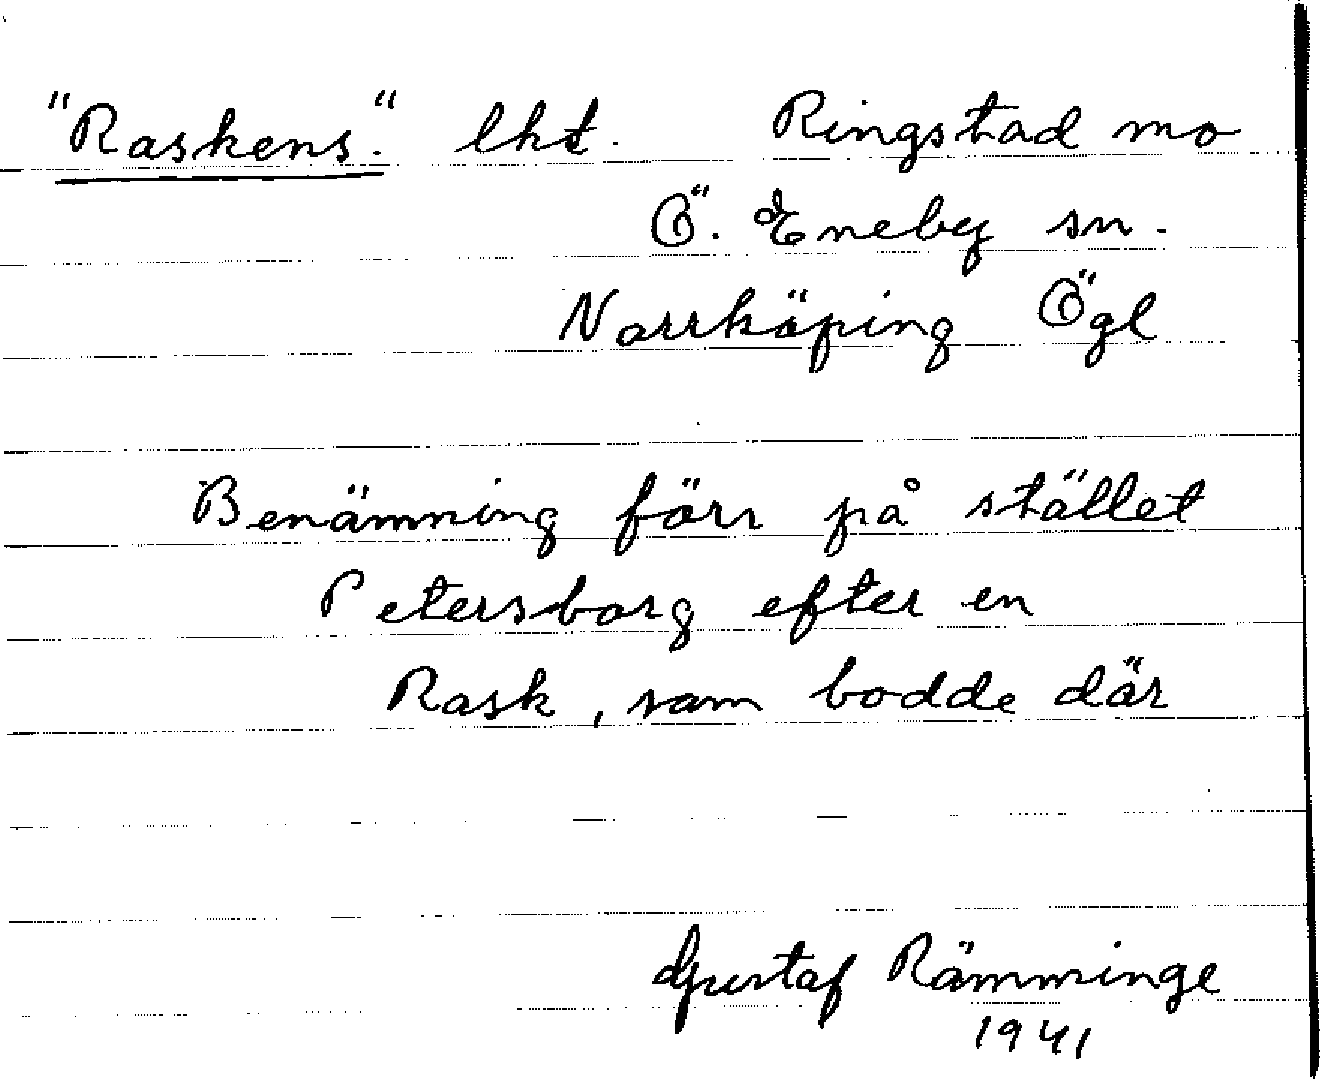 "Raskens." lht. Ringstad mo
Ö. Eneby sn.
Norrköping Ögl
Benämning förr på stället
Petersborg efter en
Rask, som bodde där
Gustaf Rämminge
1941